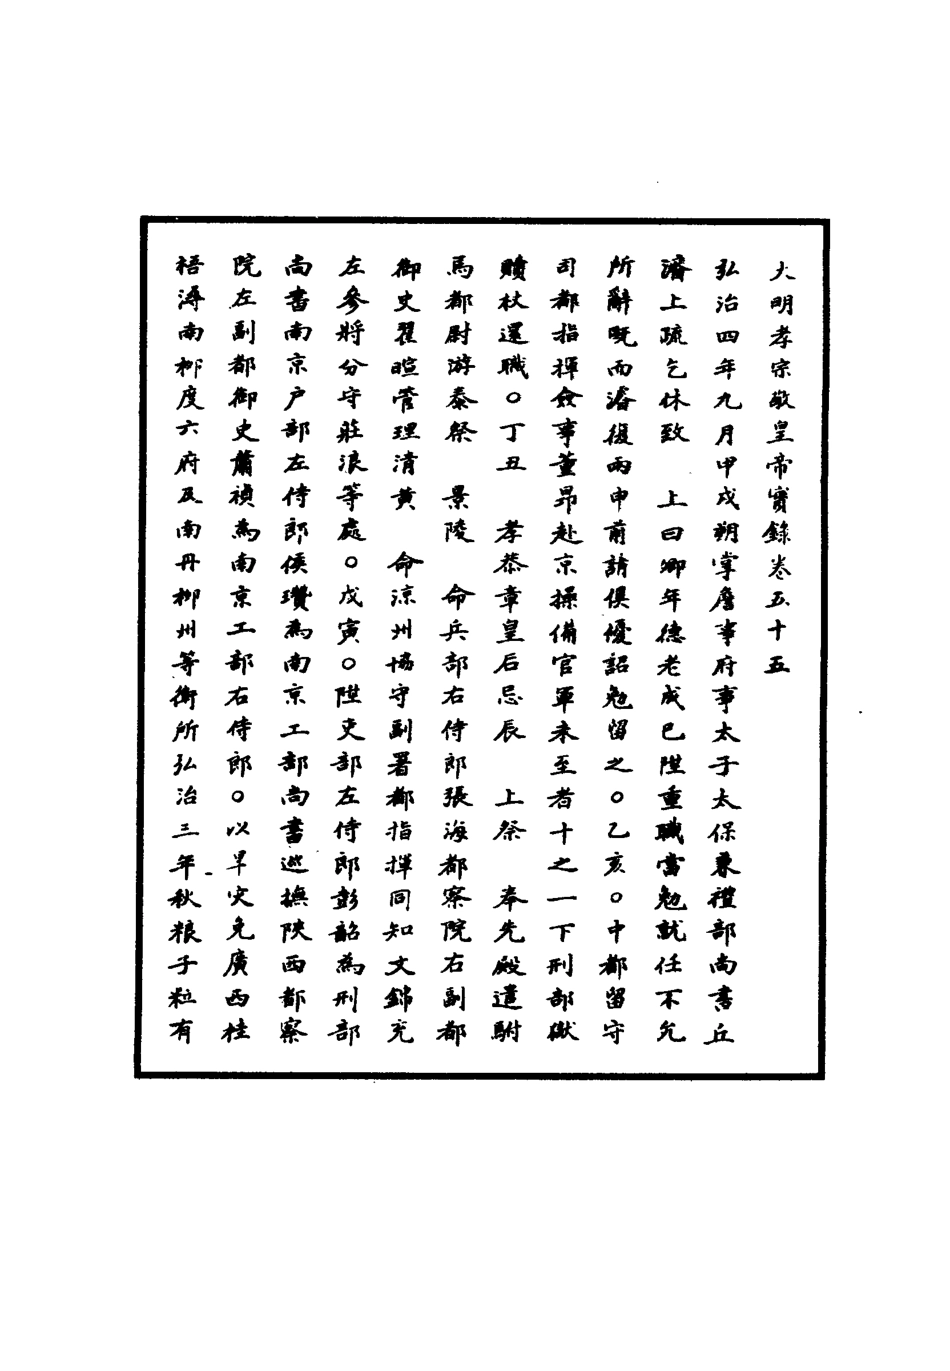 大明孝宗敬皇帝實錄卷五十五
弘治四年九月甲戌朔掌詹事府事太子太保兼禮部尚書丘
濬上疏乞休致　上曰卿年德老成已陞重職當勉就任不允
所辭既而濬復兩申前請俱優詔勉留之○乙亥○中都留守
司都指揮僉事董昂赴京操備官軍未至者十之一下刑部獄
贖杖還職○丁丑　孝恭章皇后忌辰　上祭　奉先殿遣駙
馬都尉游泰祭　景陵　命兵部右侍郎張海都察院右副都
御史翟暄管理清黃　命涼州協守副署都指揮同知文錦充
左參將分守莊浪等處○戊寅○陞吏部左侍郎彭韶為刑部
尚書南京戶部左侍郎侯瓚為南京工部尚書巡撫陝西都察
院左副都御史蕭禎為南京工部右侍郎○以旱災免廣西桂
梧潯南柳慶六府及南丹柳州等衛所弘治三年秋粮子粒有